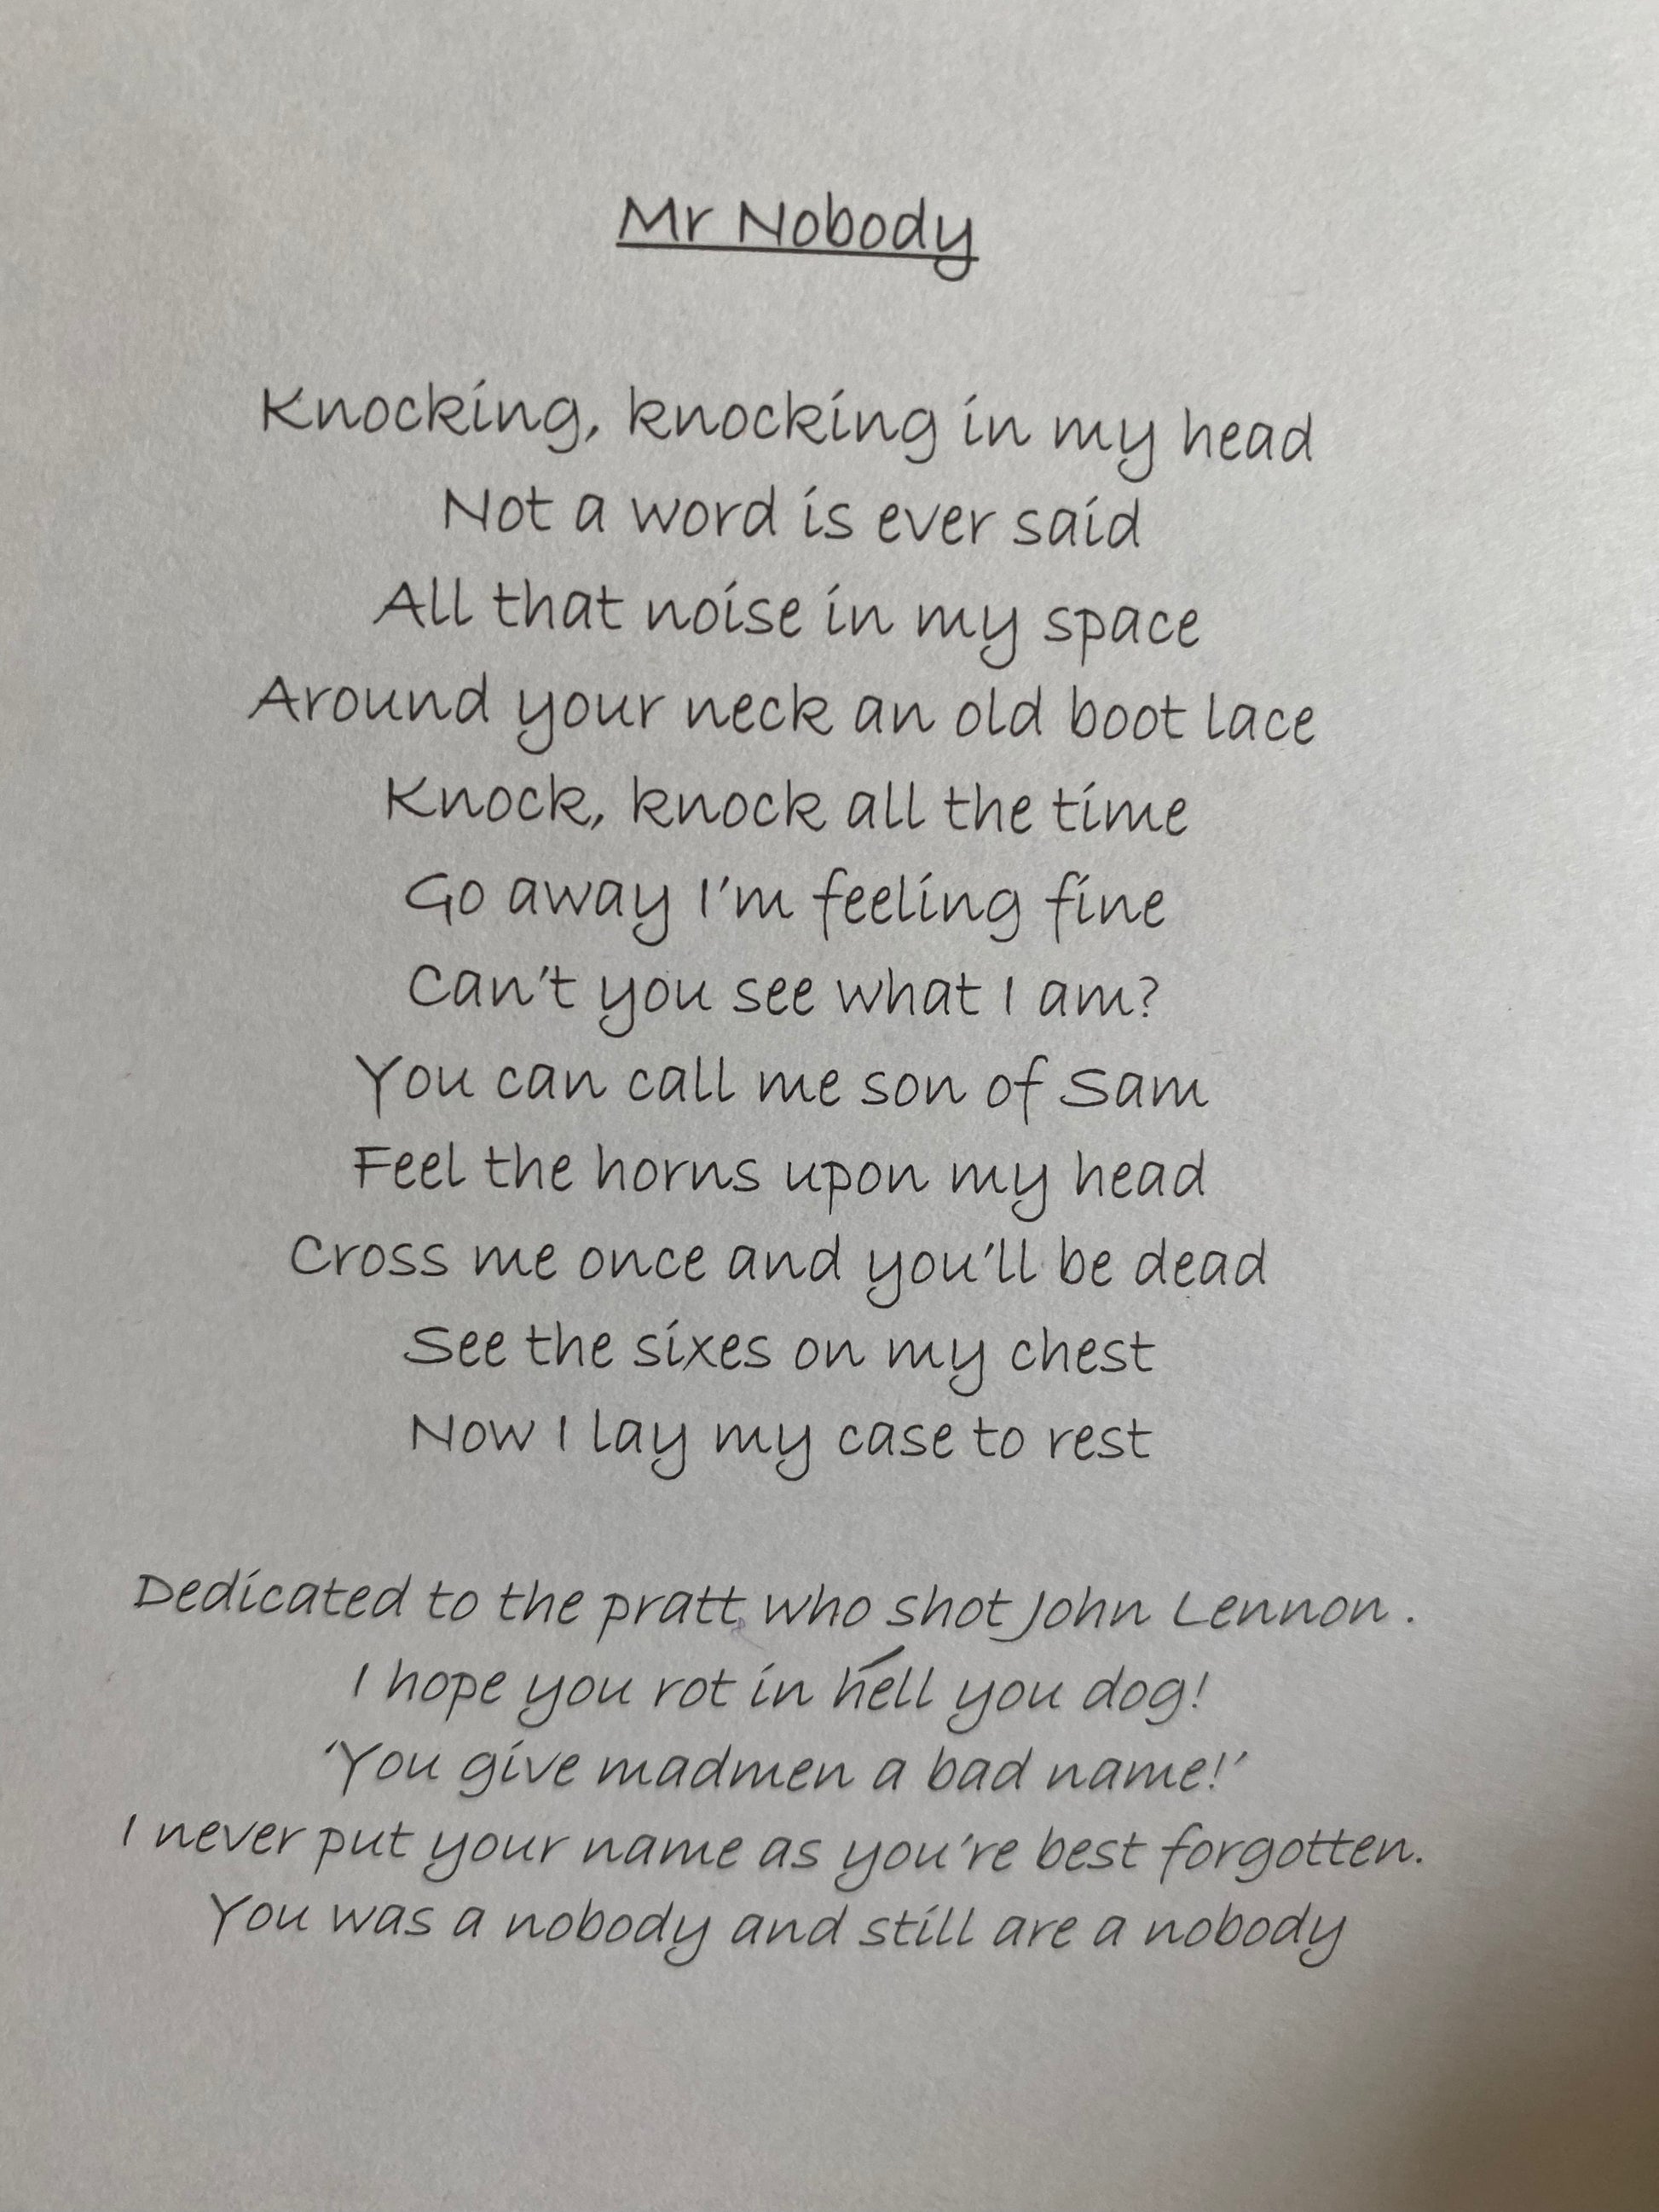 Mr Nobody
Knocking, knocking in my head
Not a word is ever said
All that noise in my space
Around your neck an old boot lace
Knock, knock all the time
Go away I'm feeling fine
Can't you see what I am?
You can call me son of Sam
Feel the horns upon my head
Cross me once and you'll be dead
See the sixes on my chest
Now I lay my case to rest
Dedicated to the pratt who shot John Lennon .
I hope you rot in hell you dog!
'You give madmen a bad name!'
I never put your name as you're best forgotten.
You was a nobody and still are a nobody